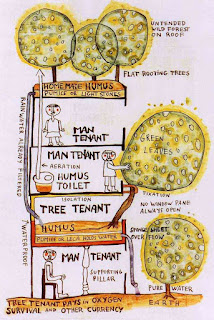 UNTENDED
WILD FOREST
ON ROOF
FLAT ROOTING TREES
HOME MADE HUMUS
PUMICE OR LIGHT STONES
RAINWATER ALREADY FILTERED
MAN
TENANT
MAN TENANT
AERATION
HUMUS
TOILET
GREEN
ISOLATION
TREE TENANT
NO WINDOW PANE
ALWAYS OPEN
HUMUS
PUMICE OR LECA HOLDS WATER
OVERFLOW
WATERPROOF
MAN TENANT
SUPPORTING
PILLAR
PURE WATER
EARTH
TREE TENANT PAYS IN OXYGEN
SURVIVAL AND OTHER CURRENCY